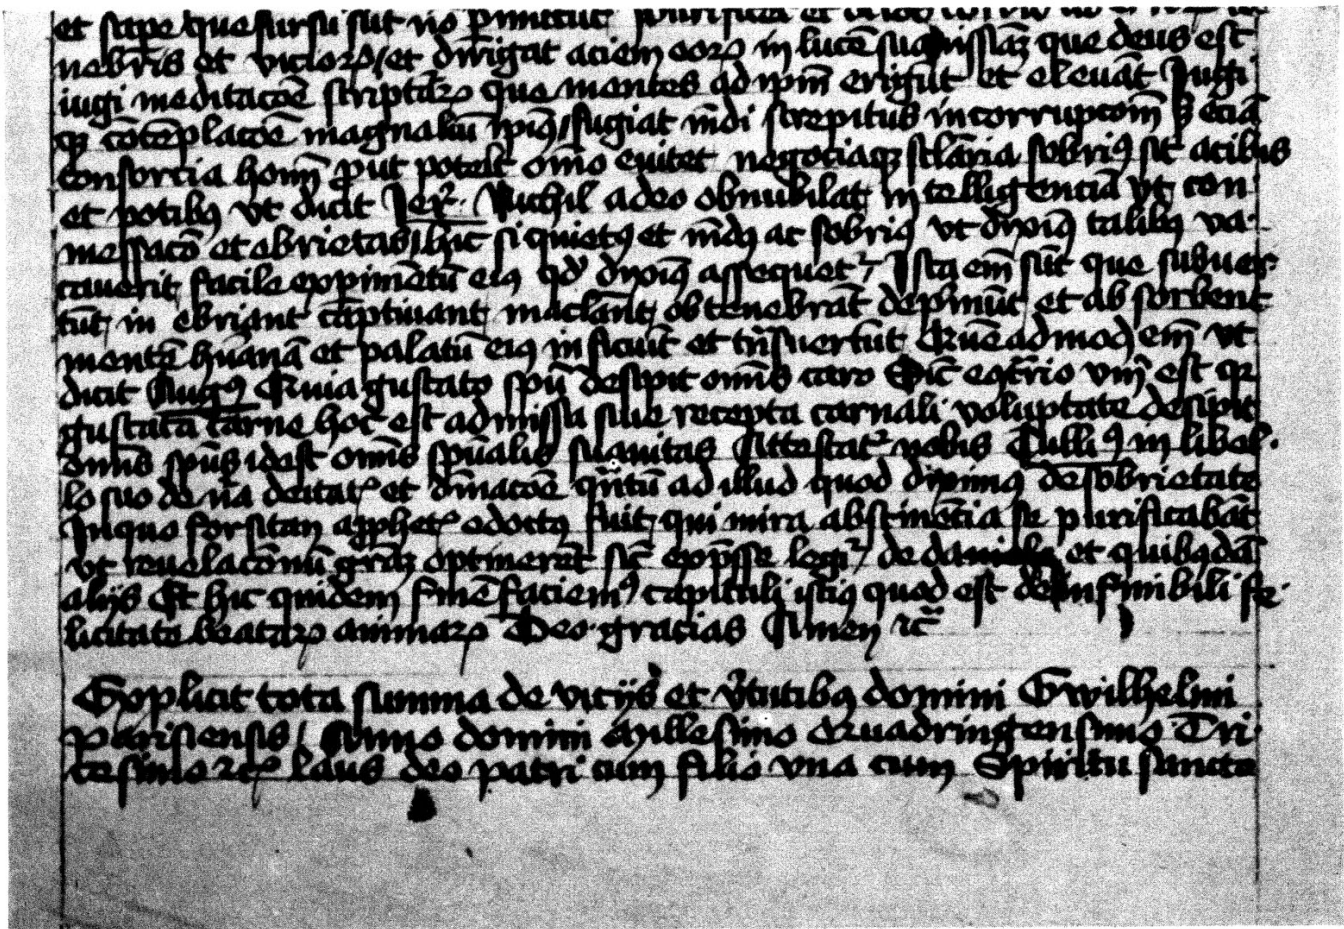 et sape que sursū sūt nō p̄mittūt
nebris et vicior͛ / et dirigat aciem eor͛ in lucē que deus est
iugi meditac̄oe scriptar͛ que mentes ad ip̄m erigūt et elevāt Jugi
qꝫ cōtēplac̄oe magnaliū ip̄iꝰ / fugiat mūdi strepitus in corrupc̄om etiā
consorcia hom̄ ꝓut potest om̄o evitet negociaqꝫ sobriꝰ sit acibus
et potibꝰ vt dicit Jer͛. Nichil adeo obnubilat intelligenciā vt con
messac̄o et ebrietas / hic si quietꝰ et mūdꝰ ac sobriꝰ vt dixiꝰ talibꝰ va-
cauerit facile exp̄imētū eiꝰ qd̛ dixiꝰ assequet͛ / Ista em̄ sūt que subuer-
tūt in ebriant captiuant maclāt obtenebrāt dep̄mūt et absorbent
mentē hūanā et palatū eiꝰ inficiūt et Quēadmodꝫ em̄ vt
dicit Augꝰ Quia gustato sp̄u desipit om̄is caro Sic econ̄rio est ꝙ
gustata carne hoc est admissa siue recepta carnali voluptate desipit
om̄is sp̄us idest om̄is sp̄ualis suauitas Attestat͛ nobis Tulliꝰ in libel-
lo suo de et quātū ad illud quod diximꝰ de sobrietate
In quo forsitan a ꝓphet͛ edoctꝰ fuit qui mira abstinēcia se purificabāt
vt reuelac̄onū gr̄aꝫ optinerēt sic̄ exp̄sse legit͛ de et quibꝰdā
alijs Et hic quidem finē faciemꝰ capituli istiꝰ quod est de infinibili fe-
licitate beatar͛ animar͛ Deo gracias Amen ꝛc̄
Explicit tota summa de vicijs et v̄tutibꝰ domini Gwilhelmi
parisiensis / Anno domini Millesimo Quadringensimo Tri-
cesimo ꝛc̄ Laus deo patri cum filio vna cum Spiritu sancto